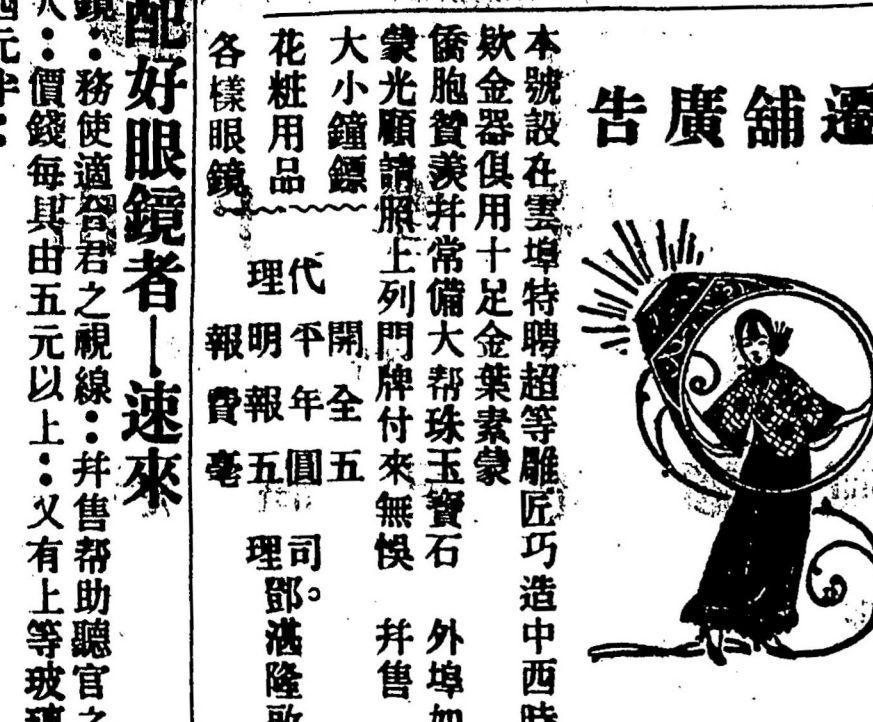 遷舖廣告
本號設在雲埠特聘超等雕匠巧造中西時
欵金器俱用十足金葉素蒙
僑胞贊羡幷常備大帮珠玉寶石 外埠如
蒙光顧請照上列門牌付來無悞 幷售
大小鐘鏢
花粧用品
各樣眼鏡
代理
開平明報
全年報費
五圓五毫
司理
鄧湛隆啟
配好眼鏡者—速來
鏡：務使適合君之視線：幷售帮助聽官之
人：價錢每具由五元以上：又有上等玻璃
四元半：